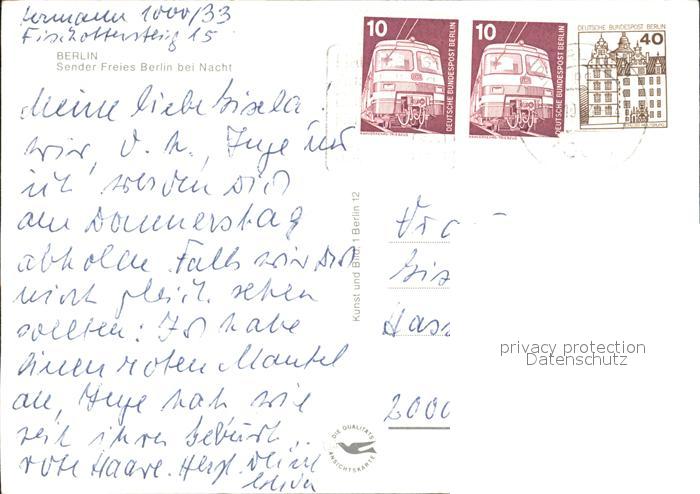 1000/33
Fischottersteig 15
BERLIN
Sender Freies Berlin bei Nacht
Meine liebe Gisela,
wir, d. h., Inge und
ich werden Dich
am Donnerstag
abholen. Falls wir Dich
nicht gleich sehen
sollten: Ich habe
einen roten Mantel
an, Inge hat wie
seit ihrer Geburt
rote Haare. Herzl. Deine
Kunst und Bild, 1 Berlin 12
10
DEUTSCHE BUNDESPOST BERLIN
NAHVERKEHRS-TRIEBZUG
10
DEUTSCHE BUNDESPOST BERLIN
NAHVERKEHRS-TRIEBZUG
DEUTSCHE BUNDESPOST BERLIN
40
Gis
Hass
2000
privacy protection
Datenschutz
DIE QUALITÄTS
ANSICHTSKARTE